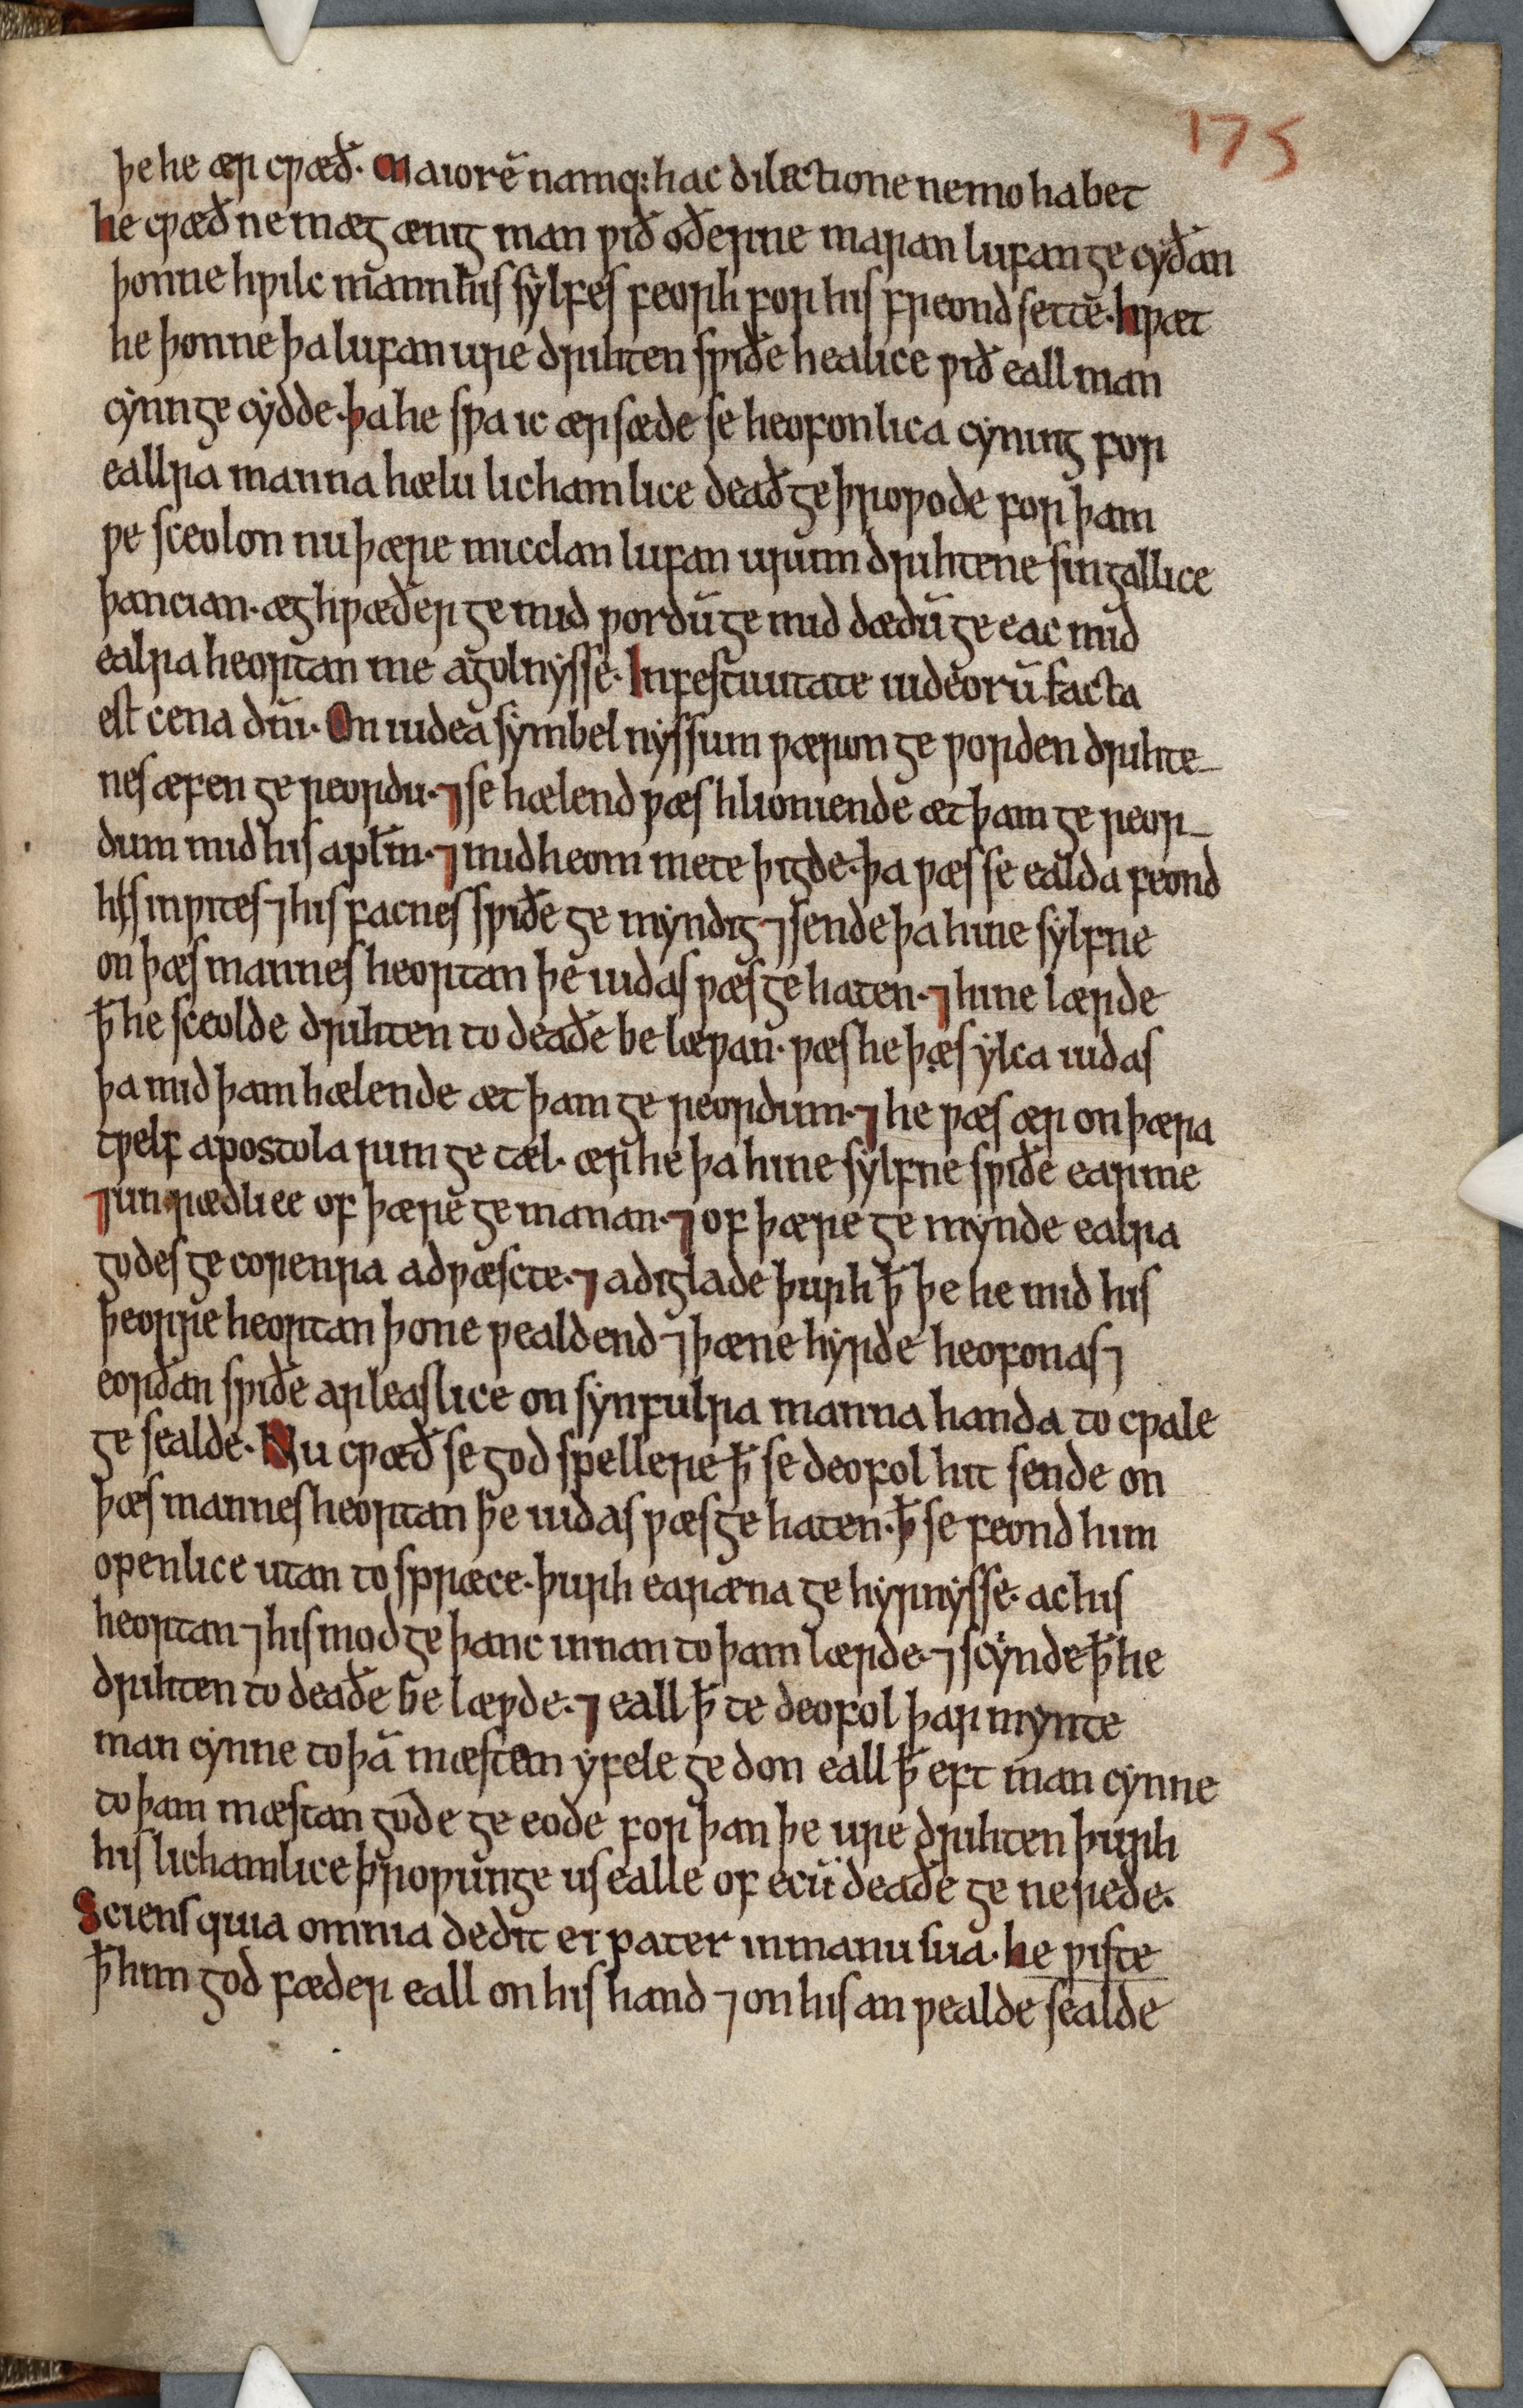 175
þe he ær cƿæð. Maiorē namq; hac dilectione nemo habet
he cƿæð ne mæg ænig man ƿið oðerne maran lufan ge cyðan
þonne hƿilc mann his sylfes feorh for his freond sette. hƿæt
he þonne þa lufan ure drihten sƿiðe healice ƿið eall man
cynn ge cydde. þa he sƿa ic ær sæde se heofonlica cyning for
eallra manna hælu lichamlice deað ge þroƿode for þam
ƿe sceolon nu þære micclan lufan urum drihtene singallice
þancian. æghƿæðer ge mid ƿordū ge mid dædū ge eac mid
ealra heortan me agolnysse. In festiuitate iudeorū facta
est cena dn̄i. On iudea symbel nyssum ƿæron ge ƿorden drihte-
nes æfen ge reordu. ⁊ se hælend ƿæs hlioniende æt þam ge reor-
dum mid his apl̄m. ⁊ mid heom mete þigde. þa ƿæs se ealda feond
his inƿites ⁊ his facnes sƿiðe ge myndig ⁊ sende þa hine sylfne
on þæs mannes heortan þe iudas ƿæs ge haten. ⁊ hine lærde
ꝥ he sceolde drihten to deaðe be læƿan. ƿæs he þæs ylca iudas
þa mid þam hælende æt þam ge reordum. ⁊ he ƿæs ær on þæra
tƿelf apostola rum ge tæl. ær he þa hine sylfne sƿiðe earme
⁊ unrædlice of þære ge manan. ⁊ of þære ge mynde ealra
godes ge corenra adƿæscte. ⁊ adiglade þurh ꝥ þe he mid his
þeorre heortan þone ƿealdend ⁊ þæne hyrde heofonas ⁊
eorðan sƿiðe arleaslice on synfulra manna handa to cƿale
ge sealde. Nu cƿæð se god spellere ꝥ se deofol hit sende on
þæs mannes heortan þe iudas ƿæs ge haten. ꝥ se feond him
openlice utan to spræce. þurh earæna ge hyrnysse. ac his
heortan ⁊ his mod ge þanc innan to þam lærde. ⁊ scynde ꝥ he
drihten to deaðe be læƿde. ⁊ eall ꝥ te deofol þar mynte
man cynne to þā mæstan yfele ge don eall ꝥ eft man cynne
to þam mæstan gode ge eode for þan þe ure drihten þurh
his lichamlice þroƿunge us ealle of ecū deaðe ge nerede.
Sciens quia omnia dedit ei pater in manu sua. he ƿiste
ꝥ him god fæder eall on his hand ⁊ on his an ƿealde sealde